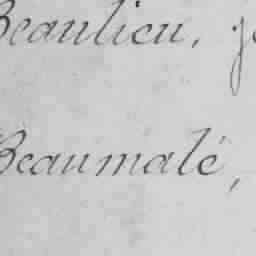 Beaulieu, je
Beaumalé,